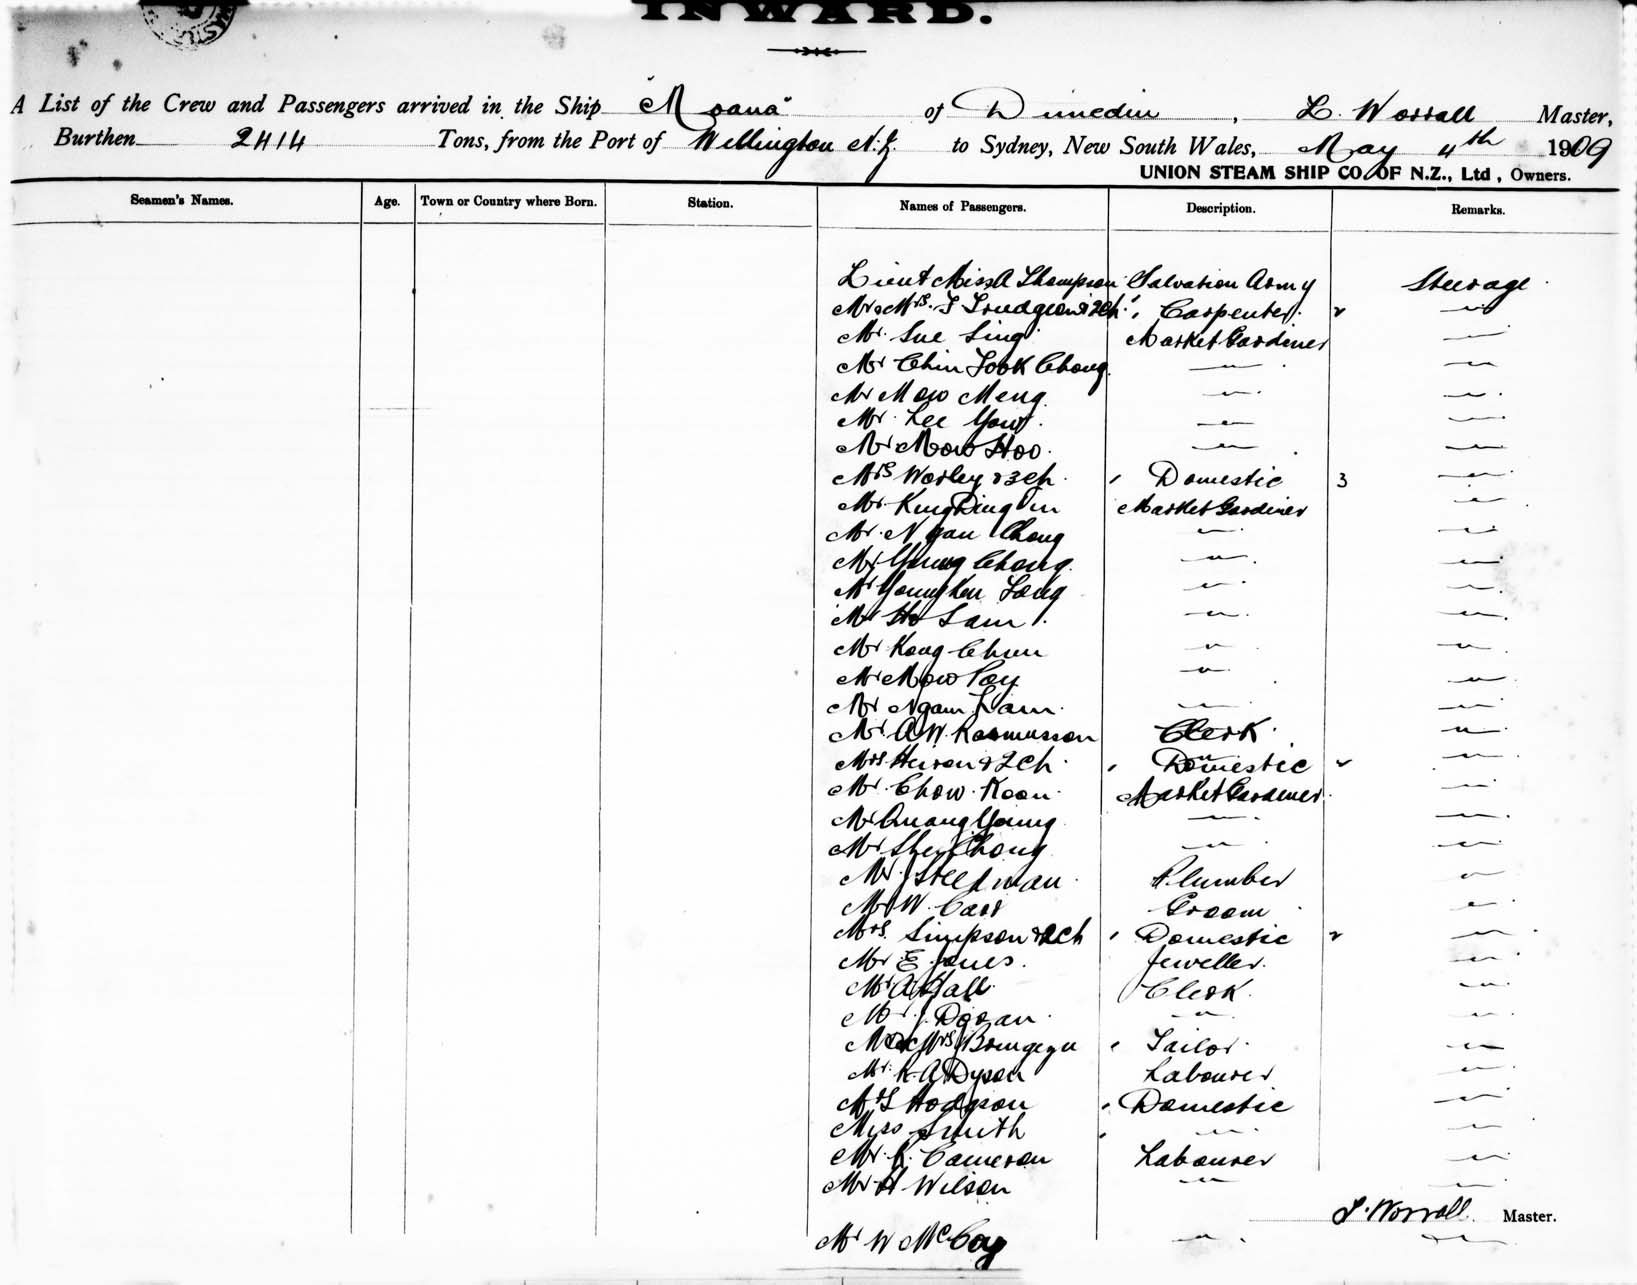 INWARD.
A List of the Crew and Passengers arrived in the Ship "Moana" of Dunedin, L. Worrall Master,
Burthen 2414 Tons, from the Port of Wellington N.Z. to Sydney, New South Wales, May 4th 1909
UNION STEAM SHIP CO. OF N.Z., Ltd, Owners.
Seamen's Names. Age. Town or Country where Born. Station. Names of Passengers. Description. Remarks.
Lieut Miss A Thompson Salvation Army Steerage
Mr & Mrs. & 2ch Carpenter. 2 "
Mr Sue Sing Market Gardiner "
Mr Chin Took Chong " "
Mr Mow Meng " "
Mr. Lee Yow " "
Mr Mow Hoo " "
Mrs Worley & 3ch. Domestic 3 "
Mr. King Market Gardiner "
Mr. Ngan Chong " "
Mr Young Chong " "
Mr Young " "
Mr Ho Sam " "
Mr Kong Chun " "
Mr Mow Poy " "
Mr Ngam Lam " "
Mr A W. Rasmusson Clerk "
Mrs & 2ch. Domestic 2 "
Mr. Chow Koon Market Gardiner "
Mr Quang Young " "
Mr Chong " "
Mr Steedman Plumber "
Mr W. Carr Groom "
Mrs. Simpson & 2ch Domestic 2 "
Mr E Jones. Jeweller. "
Mr A Hall Clerk. "
Mr J. Doran " "
Mr & Mrs Tailor "
Mr. K. A Dyson Labourer "
Mrs Hodgson Domestic "
Miss Smith " "
Mr. Cameron Labourer "
Mr H Wilson " "
L. Worrall. Master.
Mr W McCoy " "